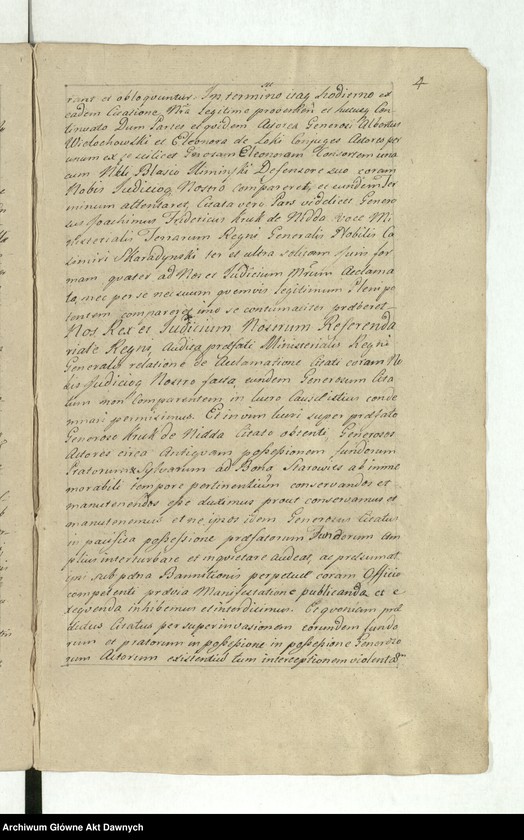 4
rant et obloquuntur. In termino itaq hodierno ex
eadem Citatione Nra legitime proveniem et hucusq Con-
tinuato Dum Partes et quidem Actorea Generosi Albertus
Wielochowski et Eleonora de Leki Conjuges Actores per
unum ex se scilicet Gnosam Eleonoram Consortem una
cum Nbli Blasio Sliminski Defensore suo coram
Nobis Judicioq Nostro compareret, et eundem Ter-
minum attentaret, Citata vero Pars videlicet Genero
sus Joachimus Fridericus Kruk de Nidda voce Mi-
nisterialis Terrarum Regni Generalis Nobilis Ca
simiri Skaradynski ter et ultra solitam Juris for
mam quater ad Nos et Judicium Nrum Acclama
ta, nec per se nec suum quemvis legitimum Plenipo
tentem compareret imo se contumaciter praeberet
Nos Rex et Judicium Nostrum Referenda
riale Regni, Audita praefati Ministerialis Regni
Generalis relatione de Acclamatione Citati coram No
bis Judicioq Nostro facta, eundem Generosum Cita
tum non Comparentem in lucro Causae istius conde
mnari permisimus. Et in vim lucri super praefato
Generoso Kruk de Nidda Citato obtenti, Generosos
Actores circa Antiquam possessionem fundorum
Pratorum & Sylvarum ad Bona Starowies ab imme
morabili tempore pertinentium conservandos et
manutenendos esse duximus prout conservamus et
manutenemus et ne ipsos idem Generosus Citatus
in pacifica possessione praefatorum Fundorum am
plius interturbare et inquietare audeat, ac praesumat
sub paena Bannitionis perpetuae coram Officio
competenti praevia Manifestatione publicanda et e
xequenda inhibemus et interdicimus. Et quoniam prae
dictus Citatus per superinvasionem eorundem fundo
rum et pratorum in possessione Generoso
rum Actorum existentium tum interceptionem violentam
Archiwum Główne Akt Dawnych